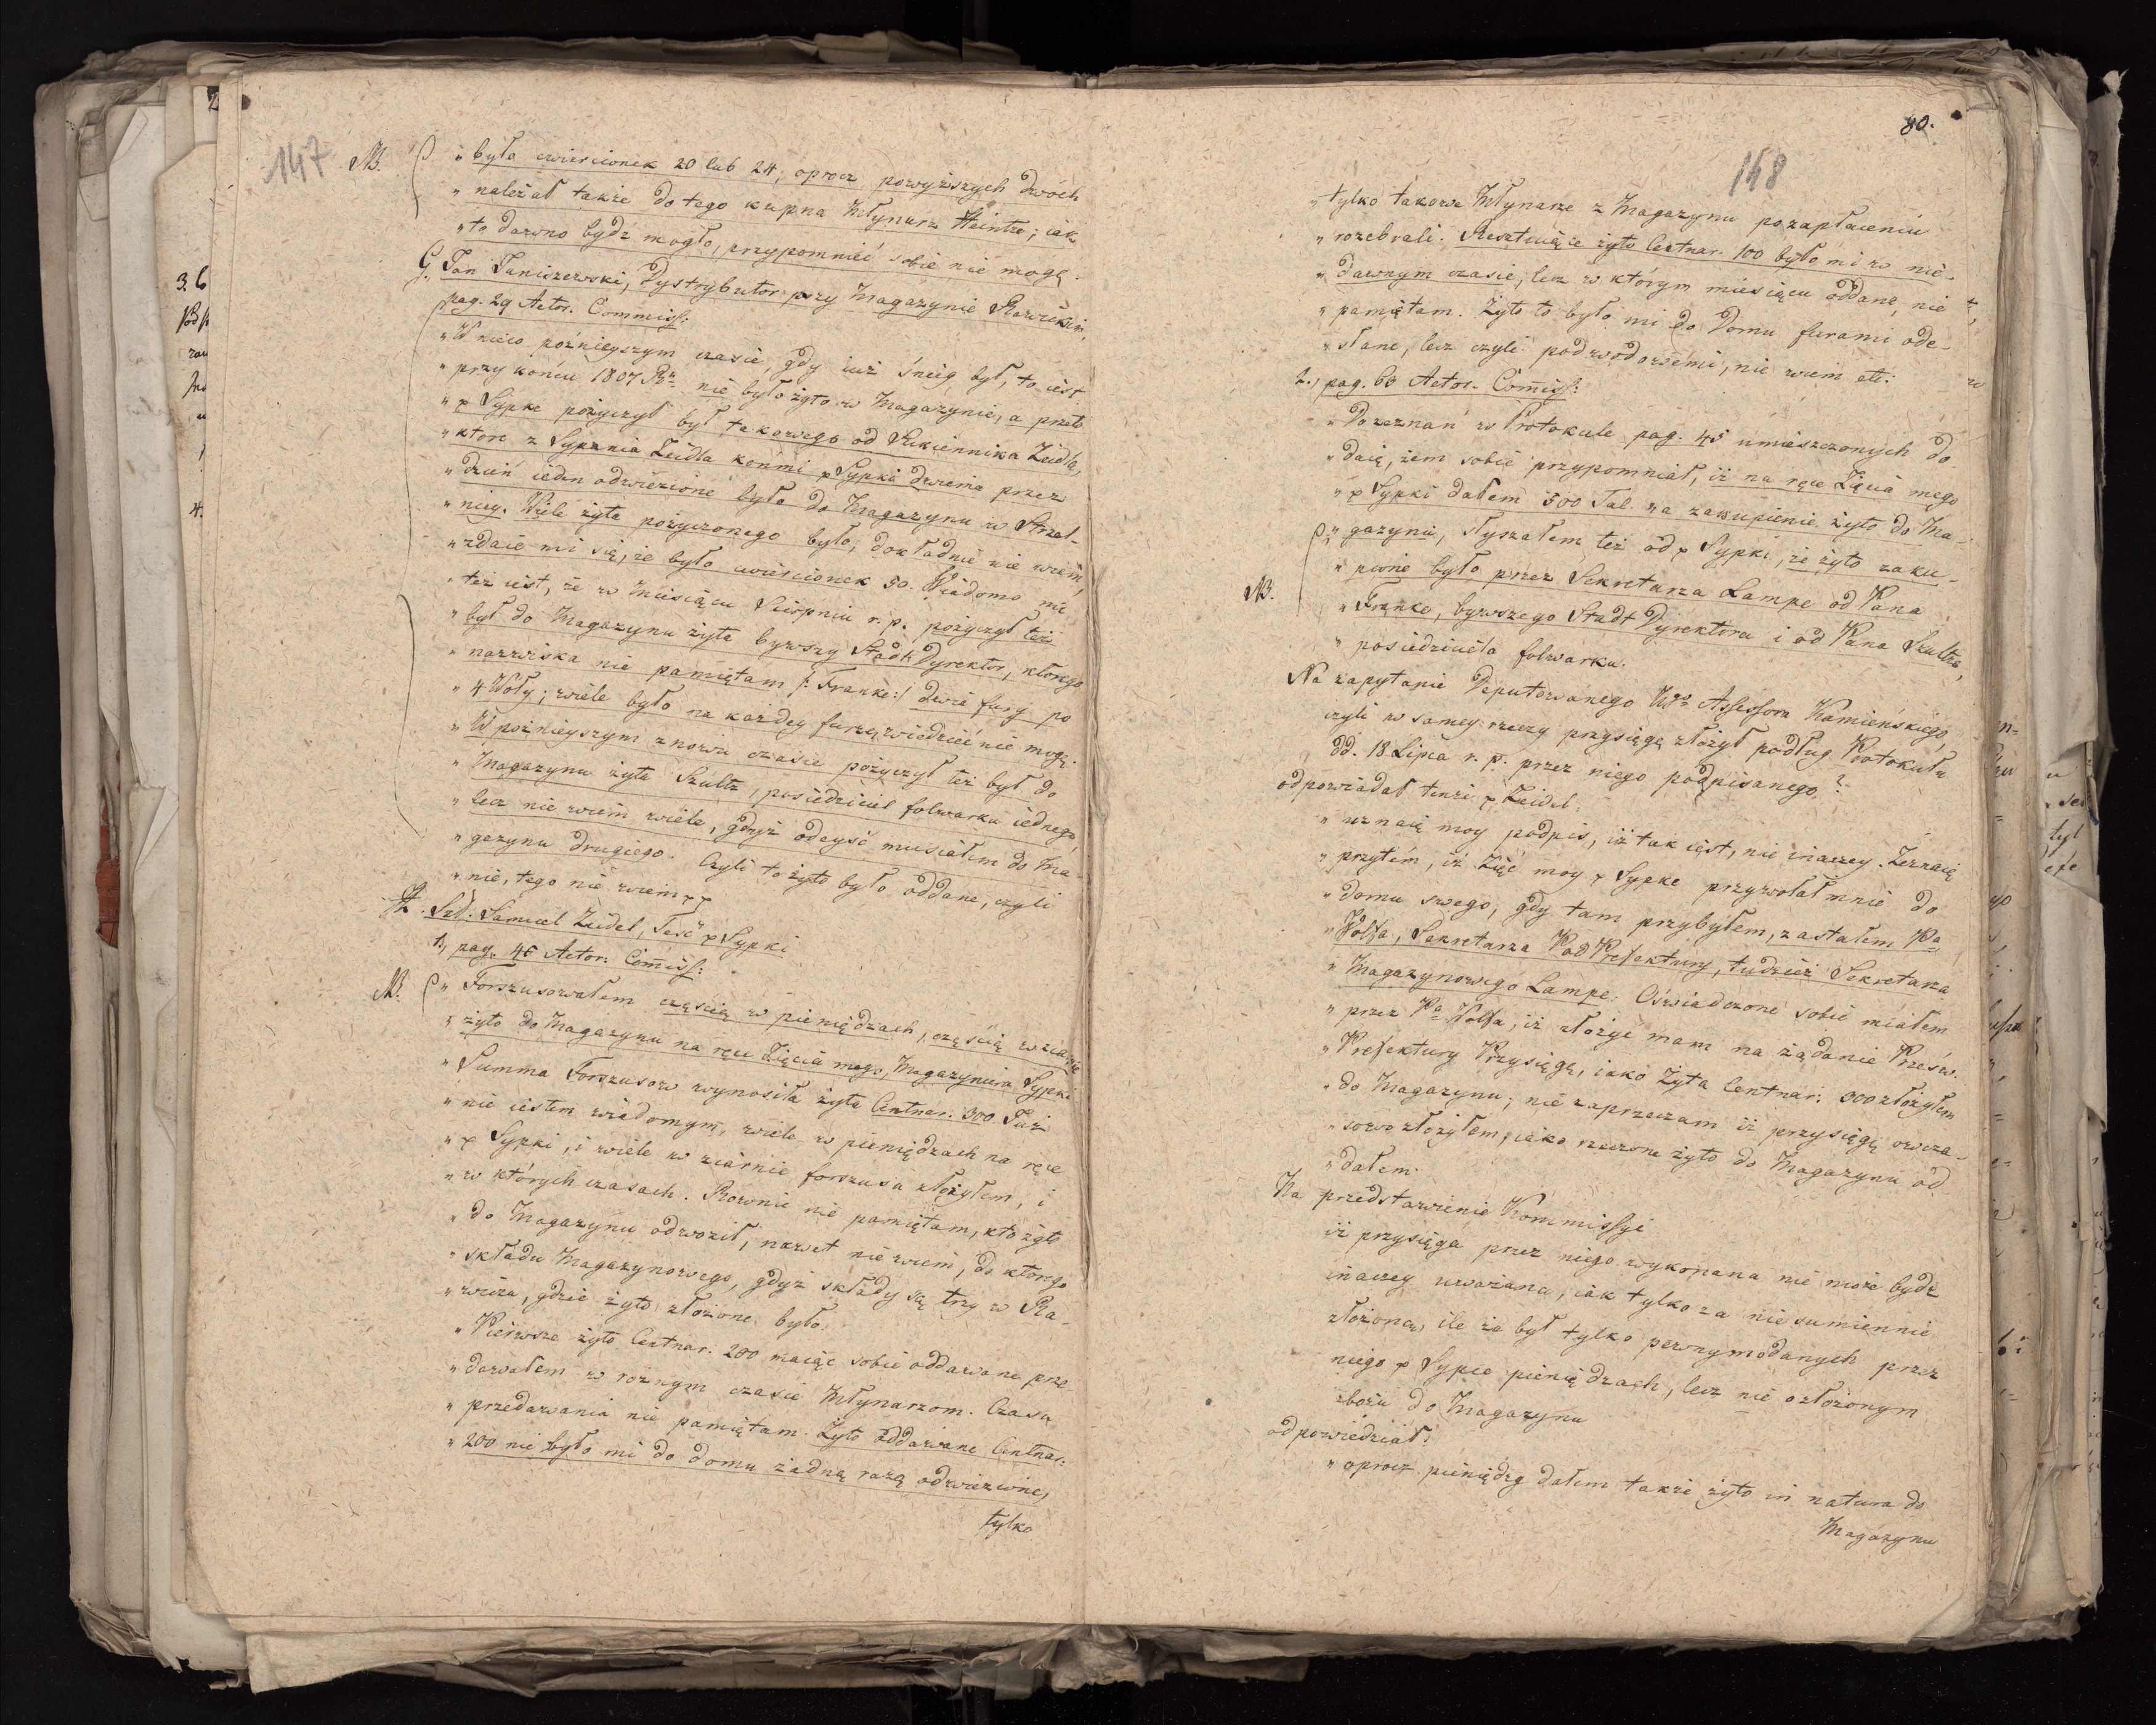 147
NB.
„ było cwiercionek 20 lub 24, oprocz powyższych dwóch
„ należał także do tego kupna Młynarz Heintze; iak
„ to dawno bydź mogło, przypomnieć sobie nie mogę.
G. Jan Janiszewski, Dystrybutor przy Magazynie Rawickim,
pag. 29 Actor. Commiss:
„ W nieco poźnieyszym czasie, gdy iuż śnieg był, to iest
„ przy końcu 1807 Ru nie było żyto w Magazynie, a przeto
„ p Sypke pożyczył był takowego od Sukiennika Zeidla,
„ ktore z Sypania Zeidla końmi p Sypki dwiema przez
„ dzień ieden odwiezione było do Magazynu w Strzel-
„ nicy. Wiele żyta pożyczonego było, dokładnie nie wiem,
„ zdaie mi się, że było cwiercionek 50. Wiadomo mi
„ też iest, że w Miesiącu Sierpniu r. p. pożyczył też
„ był do Magazynu żyta bywszy Stadt Dyrektor, ktorego
„ nazwiska nie pamiętam /: Franke :/ dwie fury po
„ 4 Woły; wiele było na każdey furze, wiedzieć nie mogę.
„ W poźnieyszym znowu czasie pożyczył też był do
„ Magazynu żyta Szultz, posiedziciel folwarku iednego,
„ lecz nie wiem wiele, gdyż odeyść musiałem do Ma-
„ gazynu drugiego. Czyli to żyto było oddane, czyli
„ nie, tego nie wiem pp
H. Szd. Samuel Zeidel, Teść p Sypki
1, pag. 45 Actor: Comiss:
NB.
„ Forszusowałem częścią w pieniędzach, częścią w ziarnie
„ żyto do Magazynu na ręce Zięcia mego, Magazyniera Sypki
„ Summa Forszusow wynosiła żyta Centnar. 300. Już
„ nie iestem wiadomym, wiele w pieniędzach na ręce
„ p Sypki, i wiele w ziarnie forszusu złożyłem, i
„ w których czasach. Rownie nie pamiętam, kto żyto
„ do Magazynu odwoził, nawet nie wiem, do ktorego
„ składu Magazynowego, gdyż składy są trzy w Ra-
„ wiczu, gdzie żyto złożone było.
„ Pierwsze żyto Centnar. 200 maiąc sobie oddawane prze-
„ dawałem w różnym czasie Młynarzom. Czasu
„ przedawania nie pamiętam. Żyto oddawane Centnar.
„ 200 nie było mi do domu żadną razą odwiezione,
tylko
80.
148
„ tylko takowe Młynarze z Magazynu po zapłaceniu
„ rozebrali. Resztuiące żyto Centnar. 100 było mi w nie-
„ dawnym czasie, lecz w którym miesiącu oddane, nie
„ pamiętam. Żyto to było mi do Domu furami ode-
„ słane, lecz czyli podwodowemi, nie wiem etc:
2., pag. 60 Actor. Comiss:
„ Do zeznań w Protokule pag. 45 umieszczonych do
„ daię, żem sobie przypomniał, iż na ręce Zięcia mego
„ p Sypki dałem 500 Tal. na zakupienie żyto do Ma-
„ gazynu, słyszałem też od p Sypki, że żyto zaku-
NB.
„ pione było przez Sekretarza Lampe od Pana
„ Franke, bywszego Stadt Dyrektora i od Pana Szultza,
„ posiedziciela folwarku.
Na zapytanie Deputowanego Wgo Assessora Kamieńskiego,
czyli w samey rzeczy przysięgę złożył podług Protokułu
dd. 18 Lipca r. p. przez niego podpisanego?
odpowiadał tenże p Zeidel:
„ uznaię moy podpis, iż tak iest, nie inaczey. Zeznaię
„ przytem, iż Zięć moy p Sypke przywołał mnie do
„ domu swego, gdy tam przybyłem, zastałem Pa
„ Wolffa, Sekretarza Pod Prefektury, tudzież Sekretarza
„ Magazynowego Lampe. Oświadczone sobie miałem
„ przez Pa Wolffa, iż złożyć mam na żądanie Prześw.
„ Prefektury Przysięgę, iako Żyta Centnar: 300 złożyłem
„ do Magazynu; nie zaprzeczam iż przysięgę owcza-
„ sowo złożyłem, iako rzeczone żyto do Magazynu od-
„ dałem.
Na przedstawienie Kommissyi
iż przysięga przez niego wykonana nie może bydź
inaczey uważana, iak tylko za niesumiennie
złożoną, ile że był tylko pewnym odanych przez
niego p Sypce pieniędzach, lecz nie ozłożonym
zbożu do Magazynu
odpowiedział:
„ oprocz pieniędzy dałem także żyto in natura do
Magazynu